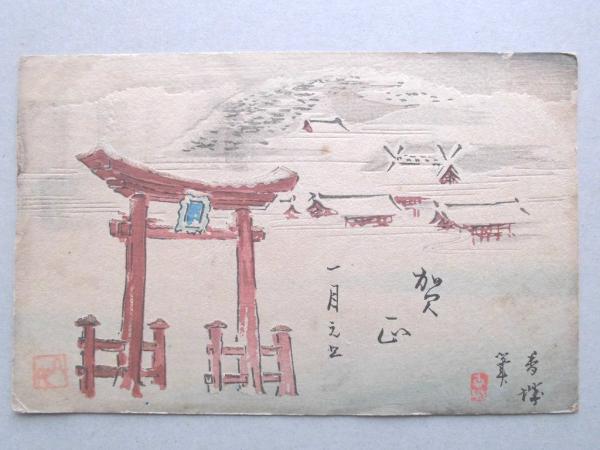 賀正
一月元旦
香城筆